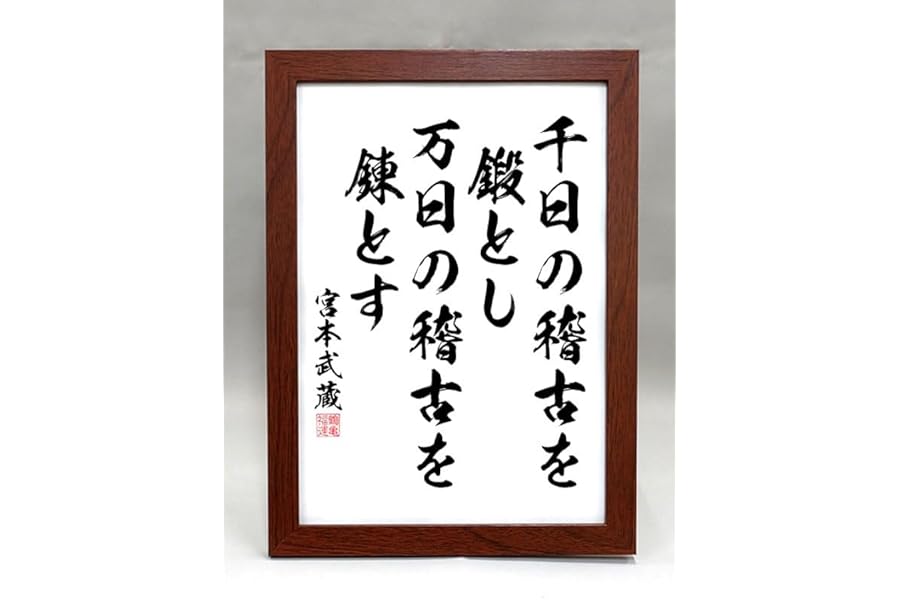 千日の稽古を
鍛とし
万日の稽古を
錬とす
宮本武蔵
鶴亀
福運